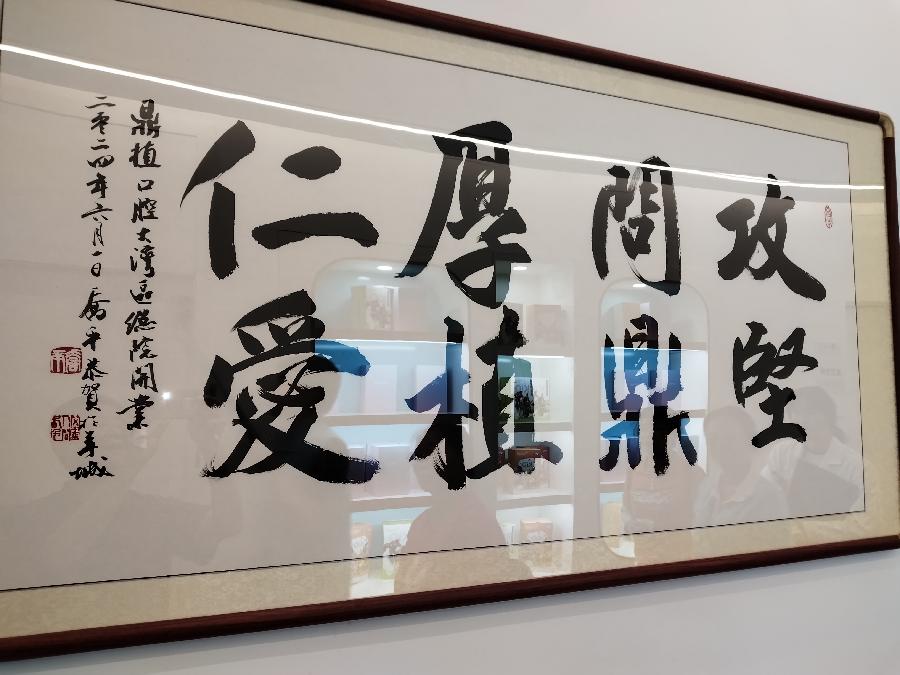 攻堅
問鼎
厚植
仁愛
鼎植口腔大湾區總院開業
二零二四年六月一日喬平恭賀於羊城